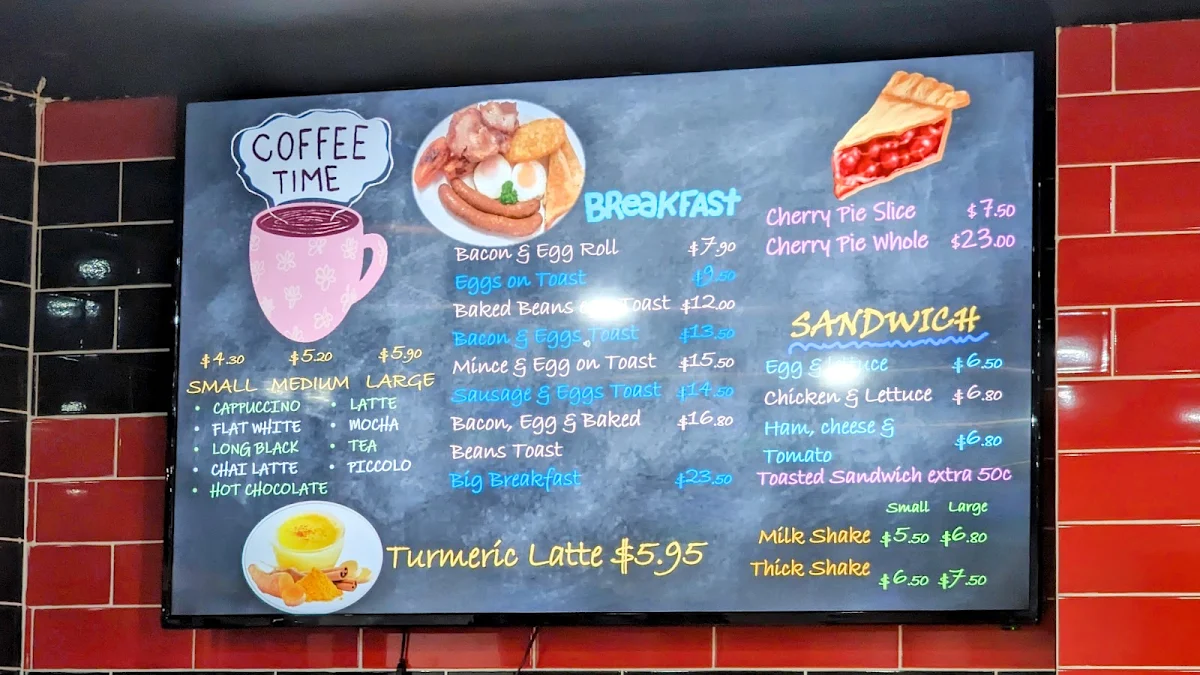 COFFEE
TIME
$4.30 $5.20 $5.90
SMALL MEDIUM LARGE
• CAPPUCCINO • LATTE
• FLAT WHITE • MOCHA
• LONG BLACK • TEA
• CHAI LATTE • PICCOLO
• HOT CHOCOLATE
BREAKFAST
Bacon & Egg Roll $7.90
Eggs on Toast $9.50
Baked Beans Toast $12.00
Bacon & Eggs Toast $13.50
Mince & Egg on Toast $15.50
Sausage & Eggs Toast $14.50
Bacon, Egg & Baked $16.80
Beans Toast
Big Breakfast $23.50
Turmeric Latte $5.95
Cherry Pie Slice $7.50
Cherry Pie Whole $23.00
SANDWICH
Egg & Lettuce $6.50
Chicken & Lettuce $6.80
Ham, cheese &
Tomato $6.80
Toasted Sandwich extra 50c
Small Large
Milk Shake $5.50 $6.80
Thick Shake $6.50 $7.50